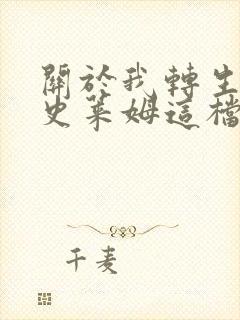 關於我轉生
史萊姆這檔
千麦